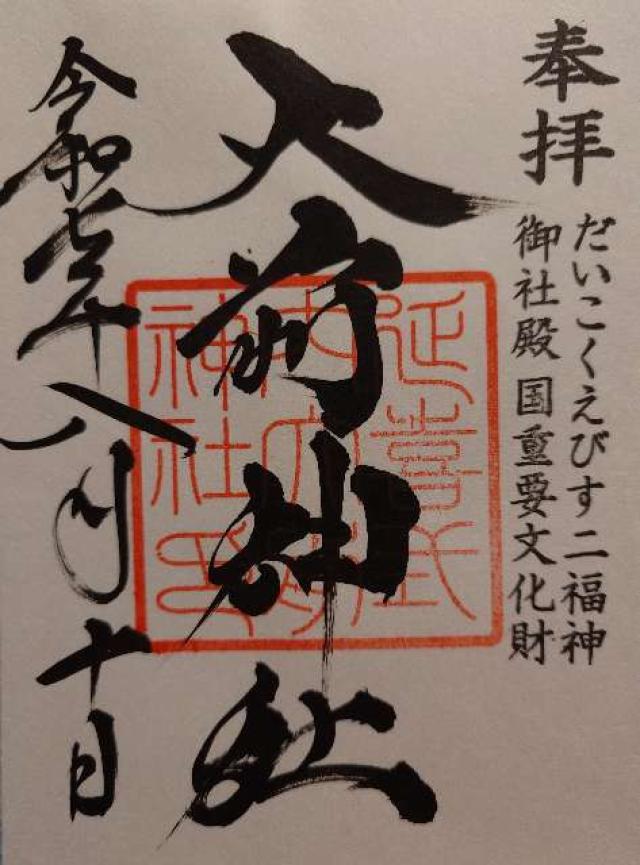 奉拝
だいこくえびす二福神
御社殿 国重要文化財
大前神社
延喜式
内大前
神社印
令和七年八月十日